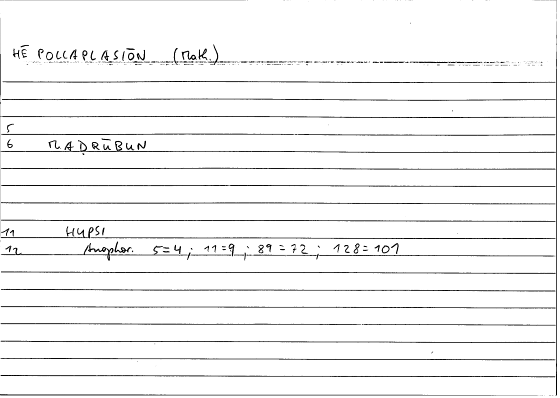 HĒ POLLAPLASIŌN (MaK.)
5
6 MADRŪBUN
11 HUPSI
12 Anaphor. 5=4; 11=9; 89=72; 128=101